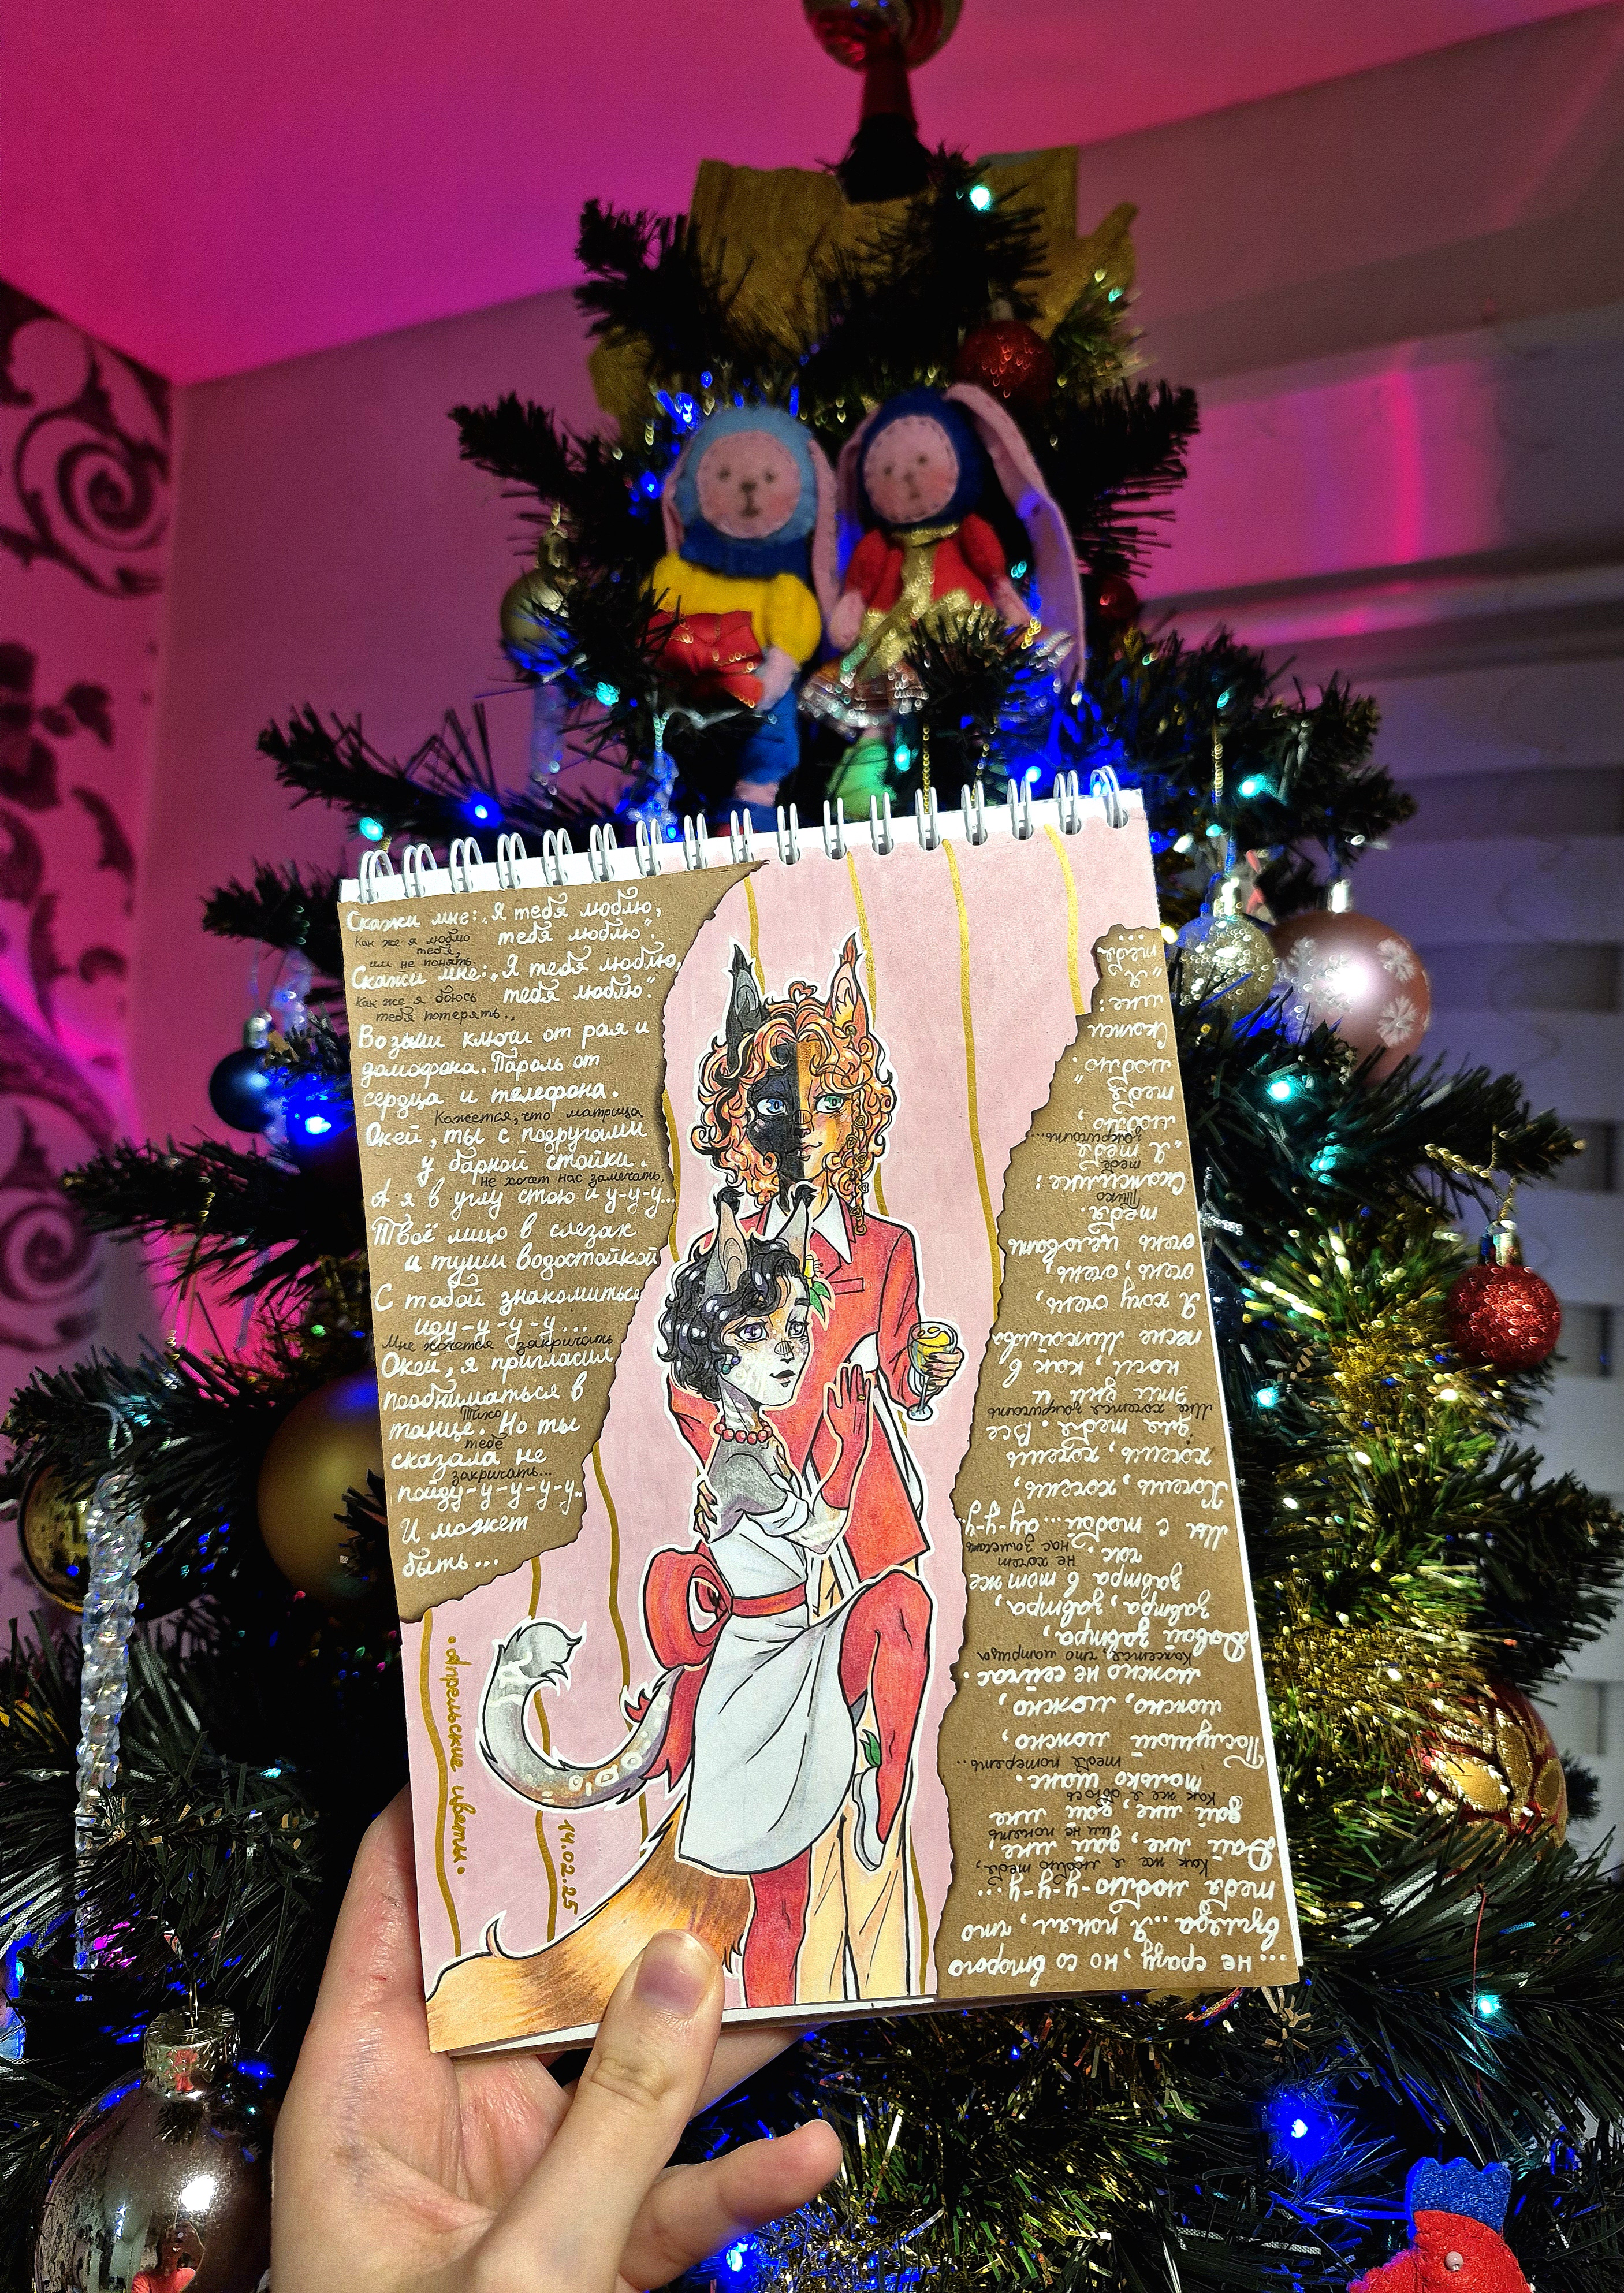 Скажи мне: „Я тебя люблю,
Как же я люблю
тебя люблю".
тебя,
им не понять.
Скажи мне: „Я тебя люблю,
Как же я боюсь
тебя люблю".
тебя потерять..
Возьми ключи от рая и
домофона. Пароль от
сердца и телефона.
Кажется, что матрица
Окей, ты с подругами
у барной стойки.
не хочет нас замечать,
А я в углу стою и у-у-у...
Твоё лицо в слезах
и туши водостойкой
С тобой знакомиться
иду-у-у-у...
Мне хочется закричать
Окей, я пригласил
пообниматься в
Тихо
танце. Но ты
тебе
сказала не
закричать...
пойду-у-у-у-у.
И может
быть...
•Апрельские цветы•
14.02.25
... не сразу, но со второго
взгляда... Я понял, что
тебя люблю-у-у-у...
Как же я люблю тебя,
Дай мне, дай мне,
им не понять
дай мне, дай мне
Как же я боюсь
только шанс.
тебя потерять..
Послушай можно,
можно, можно,
можно не сейчас.
Кажется, что матрица
Давай завтра,
завтра, завтра,
завтра в том же
не хочет
час
нас замечать
Мы с тобой... ау-у-у..
Хочешь, хочешь,
хочешь, хочешь
для тебя. Все
Мне хочется закричать
эти дни и
ночи, как в
песне Михайлова
Я хочу очень,
очень, очень,
очень целовать
тебя.
Тихо
Скажи мне:
тебе
„Я тебя
закричать...
люблю,
тебя
люблю".
Скажи
мне:
„Я
тебя
...